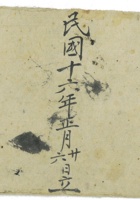 民國十六年正月廿六日立